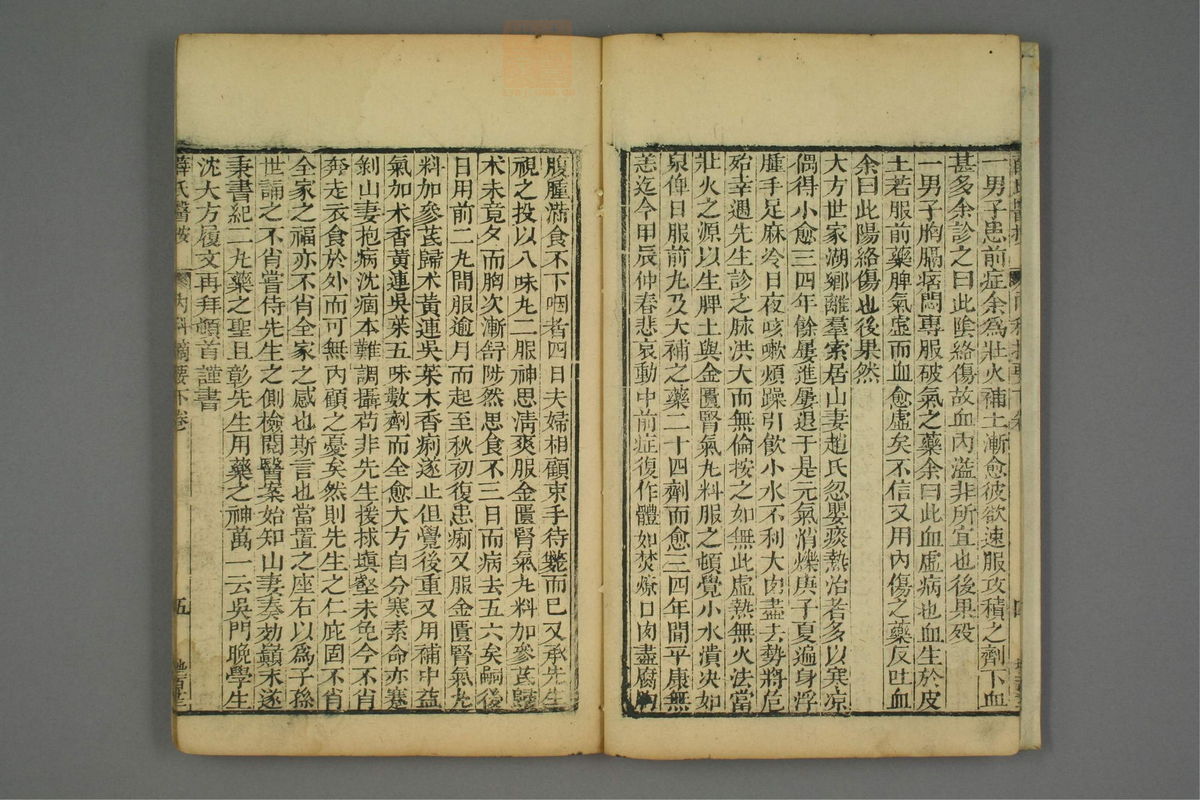 一男子患前症余爲壯火補土漸愈彼欲速服攻積之劑下血
甚多余診之曰此陰絡傷故血內溢非所宜也後果歿
一男子胸膈痞悶專服破氣之藥余曰此血虛病也血生於皮
土若服前藥脾氣虛而血愈虛矣不信又用內傷之藥反吐血
余曰此陽絡傷也後果然
大方世家湖鄉離羣索居山妻趙氏忽嬰痰熱治者多以寒凉
偶得小愈三四年餘屢進屢退于是元氣消爍庚子夏遍身浮
腫手足麻冷日夜咳嗽煩躁引飲小水不利大肉盡去勢將危
殆幸遇先生診之脉洪大而無倫按之如無此虛熱無火法當
壯火之源以生脾土與金匱腎氣丸料服之頓覺小水潰决如
泉俾日服前丸及大補之藥二十四劑而愈三四年間平康無
恙迄今甲辰仲春悲哀動中前症復作體如焚燎口肉盡腐胸
腹腫滿食不下咽者四日夫婦相顧束手待斃而已又承先生
視之投以八味丸二服神思清爽服金匱腎氣丸料加參芪歸
术未竟夕而胸次漸舒陟然思食不三日而病去五六矣嗣後
日用前二丸間服逾月而起至秋初復患痢又服金匱腎氣丸
料加參芪歸术黃連吳茱木香痢遂止但覺後重又用補中益
氣加木香黃連吳茱五味數劑而全愈大方自分寒素命亦蹇
剝山妻抱病沈痼本難調攝苟非先生援拯塡壑未免今不肖
奔走衣食於外而可無內顧之憂矣然則先生之仁庇固不肖
全家之福亦不肖全家之感也斯言也當置之座右以爲子孫
世誦之不肖嘗侍先生之側檢閱醫案始知山妻奏効巔末遂
秉書紀二丸藥之聖且彰先生用藥之神萬一云吳門晚學生
沈大方履文再拜頓首謹書
薛氏醫按 內科摘要下卷 五